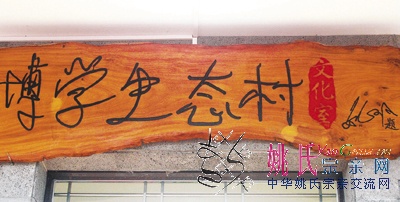 博学生态村
文化室
题
姚氏宗亲网
中华姚氏宗亲交流网